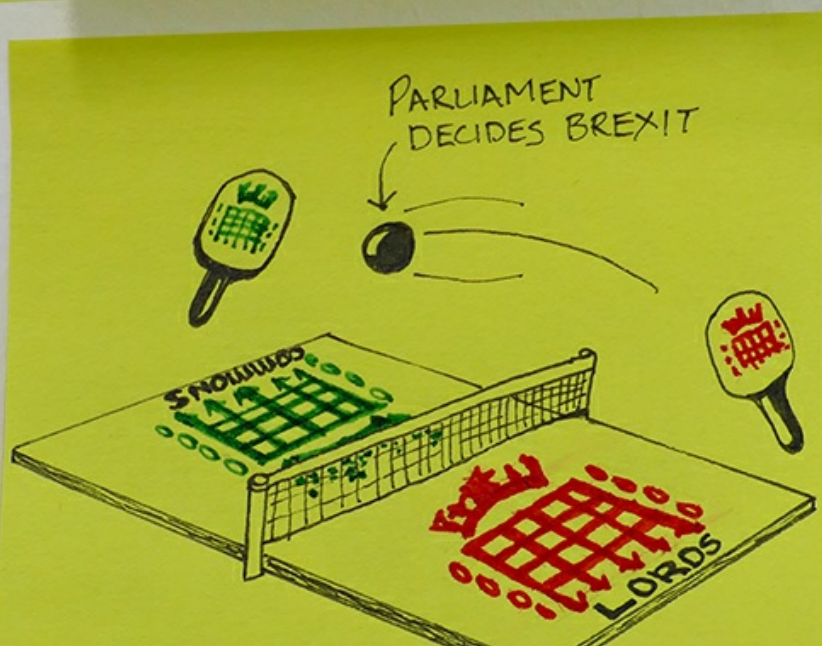 PARLIAMENT
DECIDES BREXIT
COMMONS
LORDS